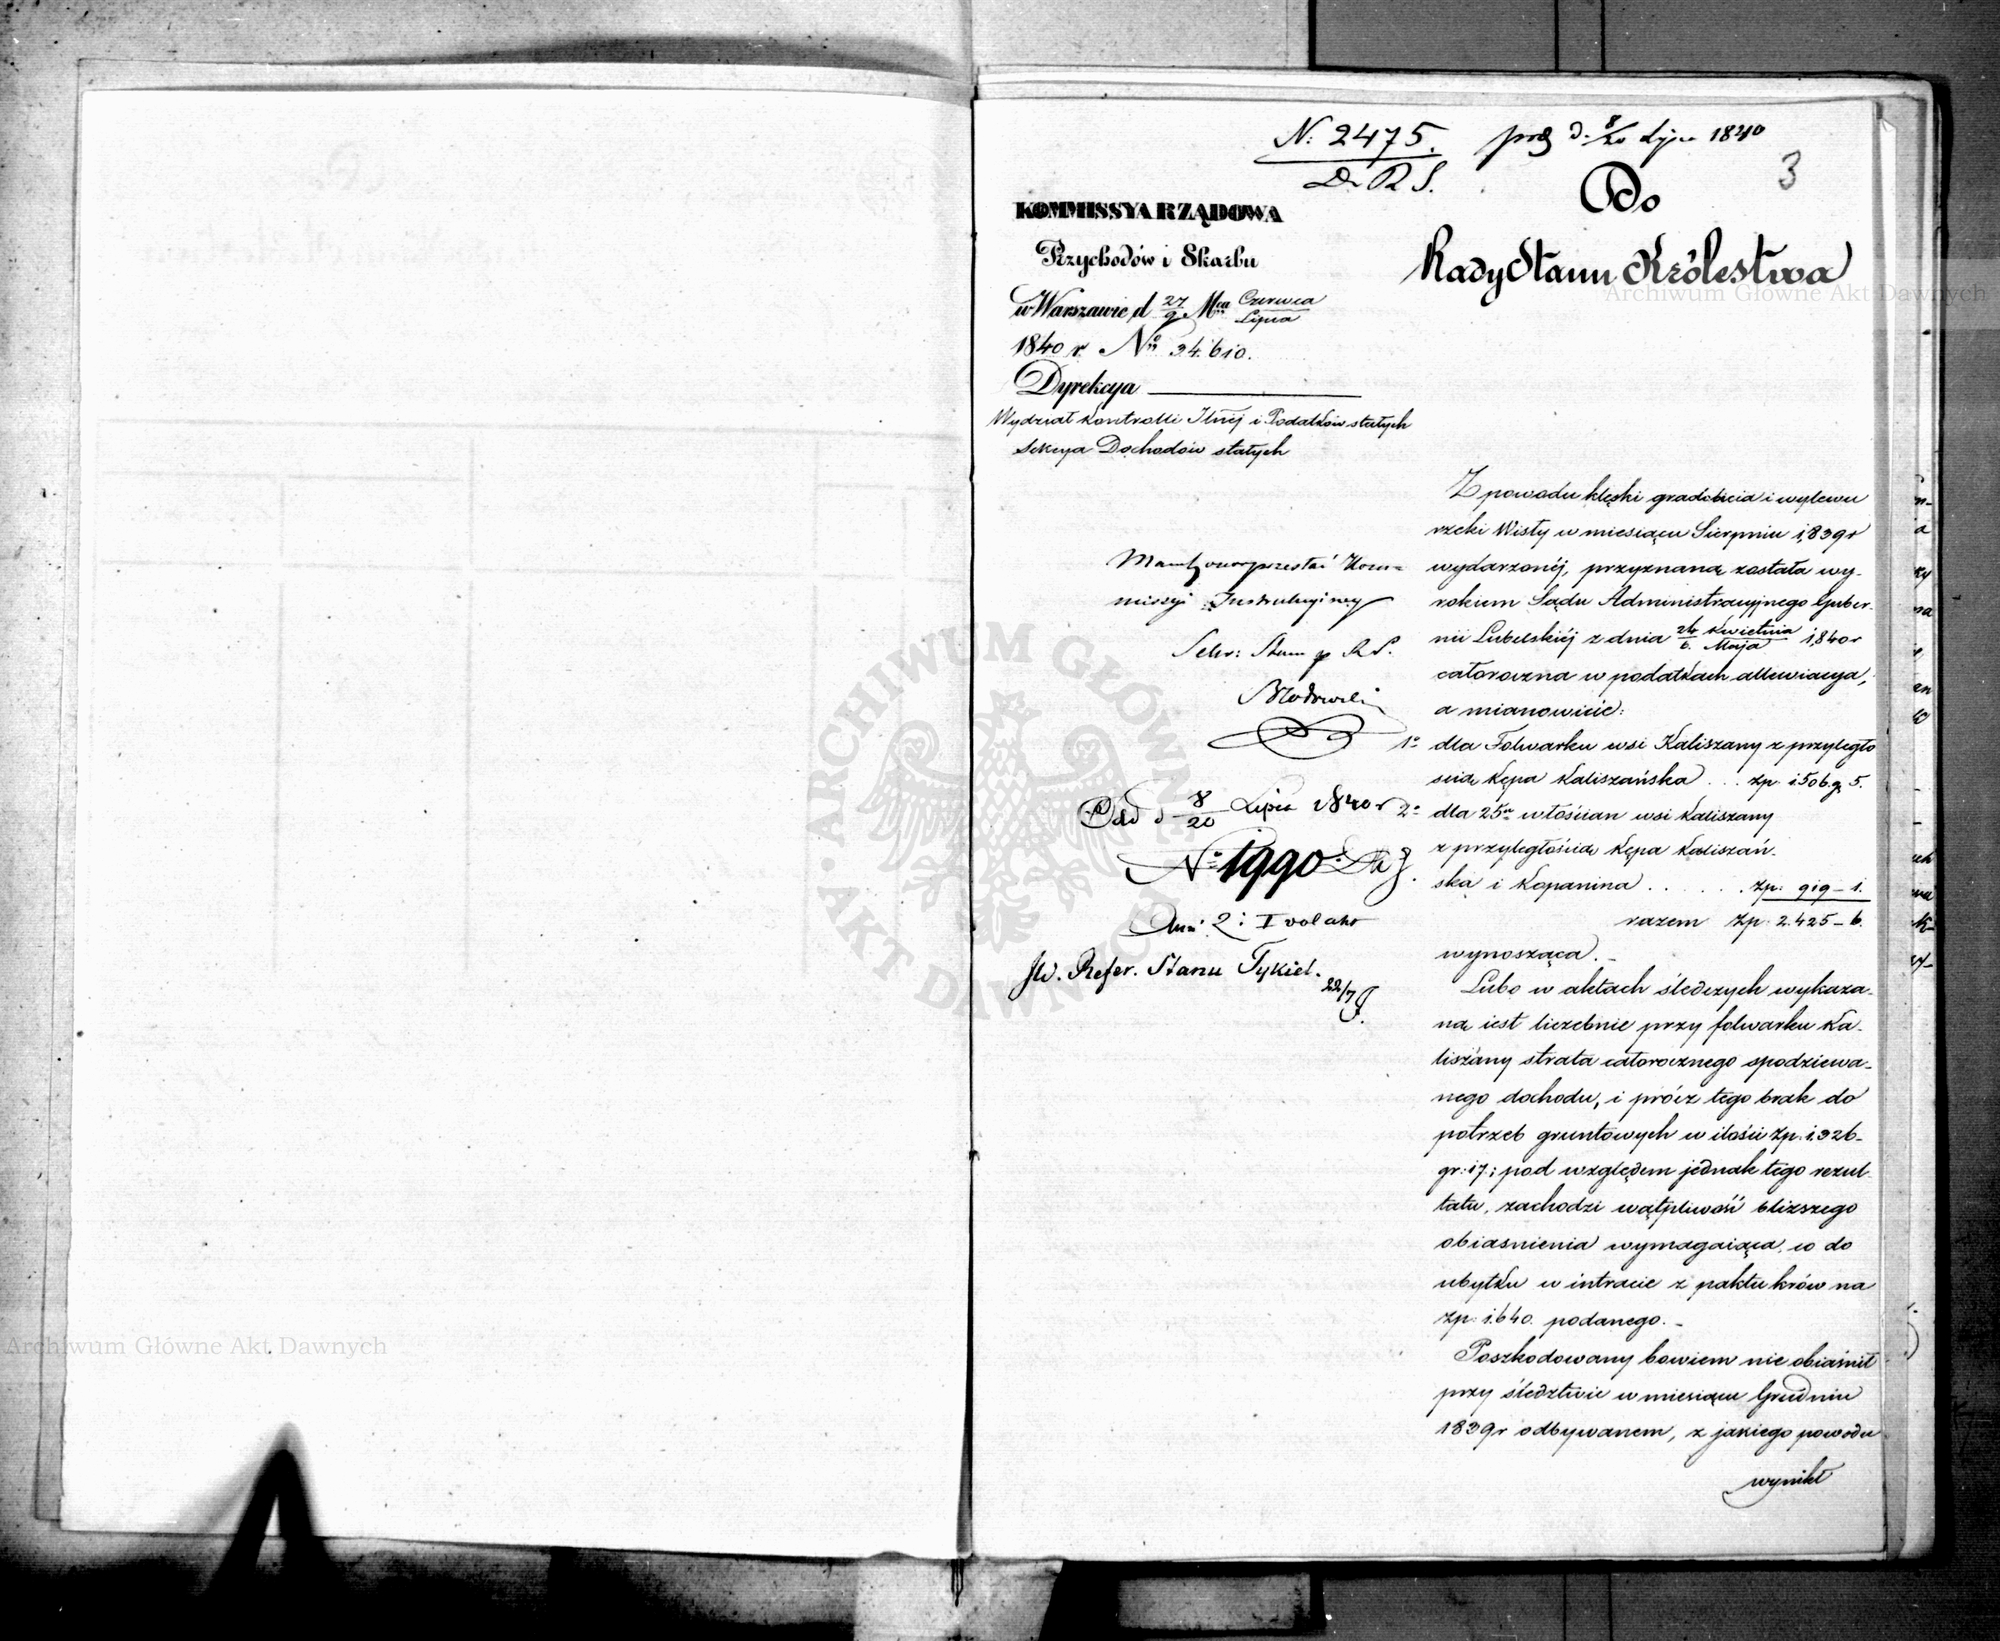 N: 2475. D. 8/20 1840
D. R S.
3
KOMMISSYA RZĄDOWA
Przychodów i Skarbu
w Warszawie d 27/9 Mca Czerwca/Lipca
1840 r. No 34.610.
Dyrekcya
Wydział Kontrolli Ilnéj i Podatków stałych
Sekcya Dochodów stałych
Do
Rady Stanu Królestwa
missyi Instrukcyjney
Sekr: Stanu R S.
d 8/20 Lipca 1840 r
No 1990.
JW. Refer. Stanu Tykiel.
22/7
Z powodu klęski gradobicia i wylewu
rzeki Wisły w miesiącu Sierpniu 1,839 r
wydarzonéj, przyznaną została wy-
rokiem Sądu Administracyjnego Guber-
nii Lubelskiéj z dnia 24/6. Kwietnia/Maja 1,840 r
całoroczna w podatkach allewiacya,
a mianowicie:
1o dla Folwarku wsi Kaliszany z przyległo
scią Kępa Kaliszańska . . . Zp. 1506 g. 5.
2o dla 25u włościan wsi Kaliszany
z przyległościa Kępa Kaliszań-
ska i Kopanina . . . . . . Zp: 919 – 1.
razem Zp: 2.425 – 6.
wynosząca. –
Lubo w aktach śledczych wykaza-
ną iest liczebnie przy folwarku Ka-
liszany strata całorocznego spodziewa-
nego dochodu, i prócz tego brak do
potrzeb gruntowych w ilości Zp: 1.326-
gr: 17; pod względem jednak tego rezul-
tatu, zachodzi wątpliwość bliższego
obiasnienia wymagaiąca, co do
ubytku w intracie z paktu krów na
Zp: 1.640. podanego. –
Poszkodowany bowiem nie obiaśnił
przy śledztwie w miesiącu Grudniu
1839 r odbywanem, z jakiego powodu
wynikł
Archiwum Główne Akt Dawnych
Archiwum Główne Akt Dawnych
ARCHIWUM GŁÓWNE AKT DAWNYCH